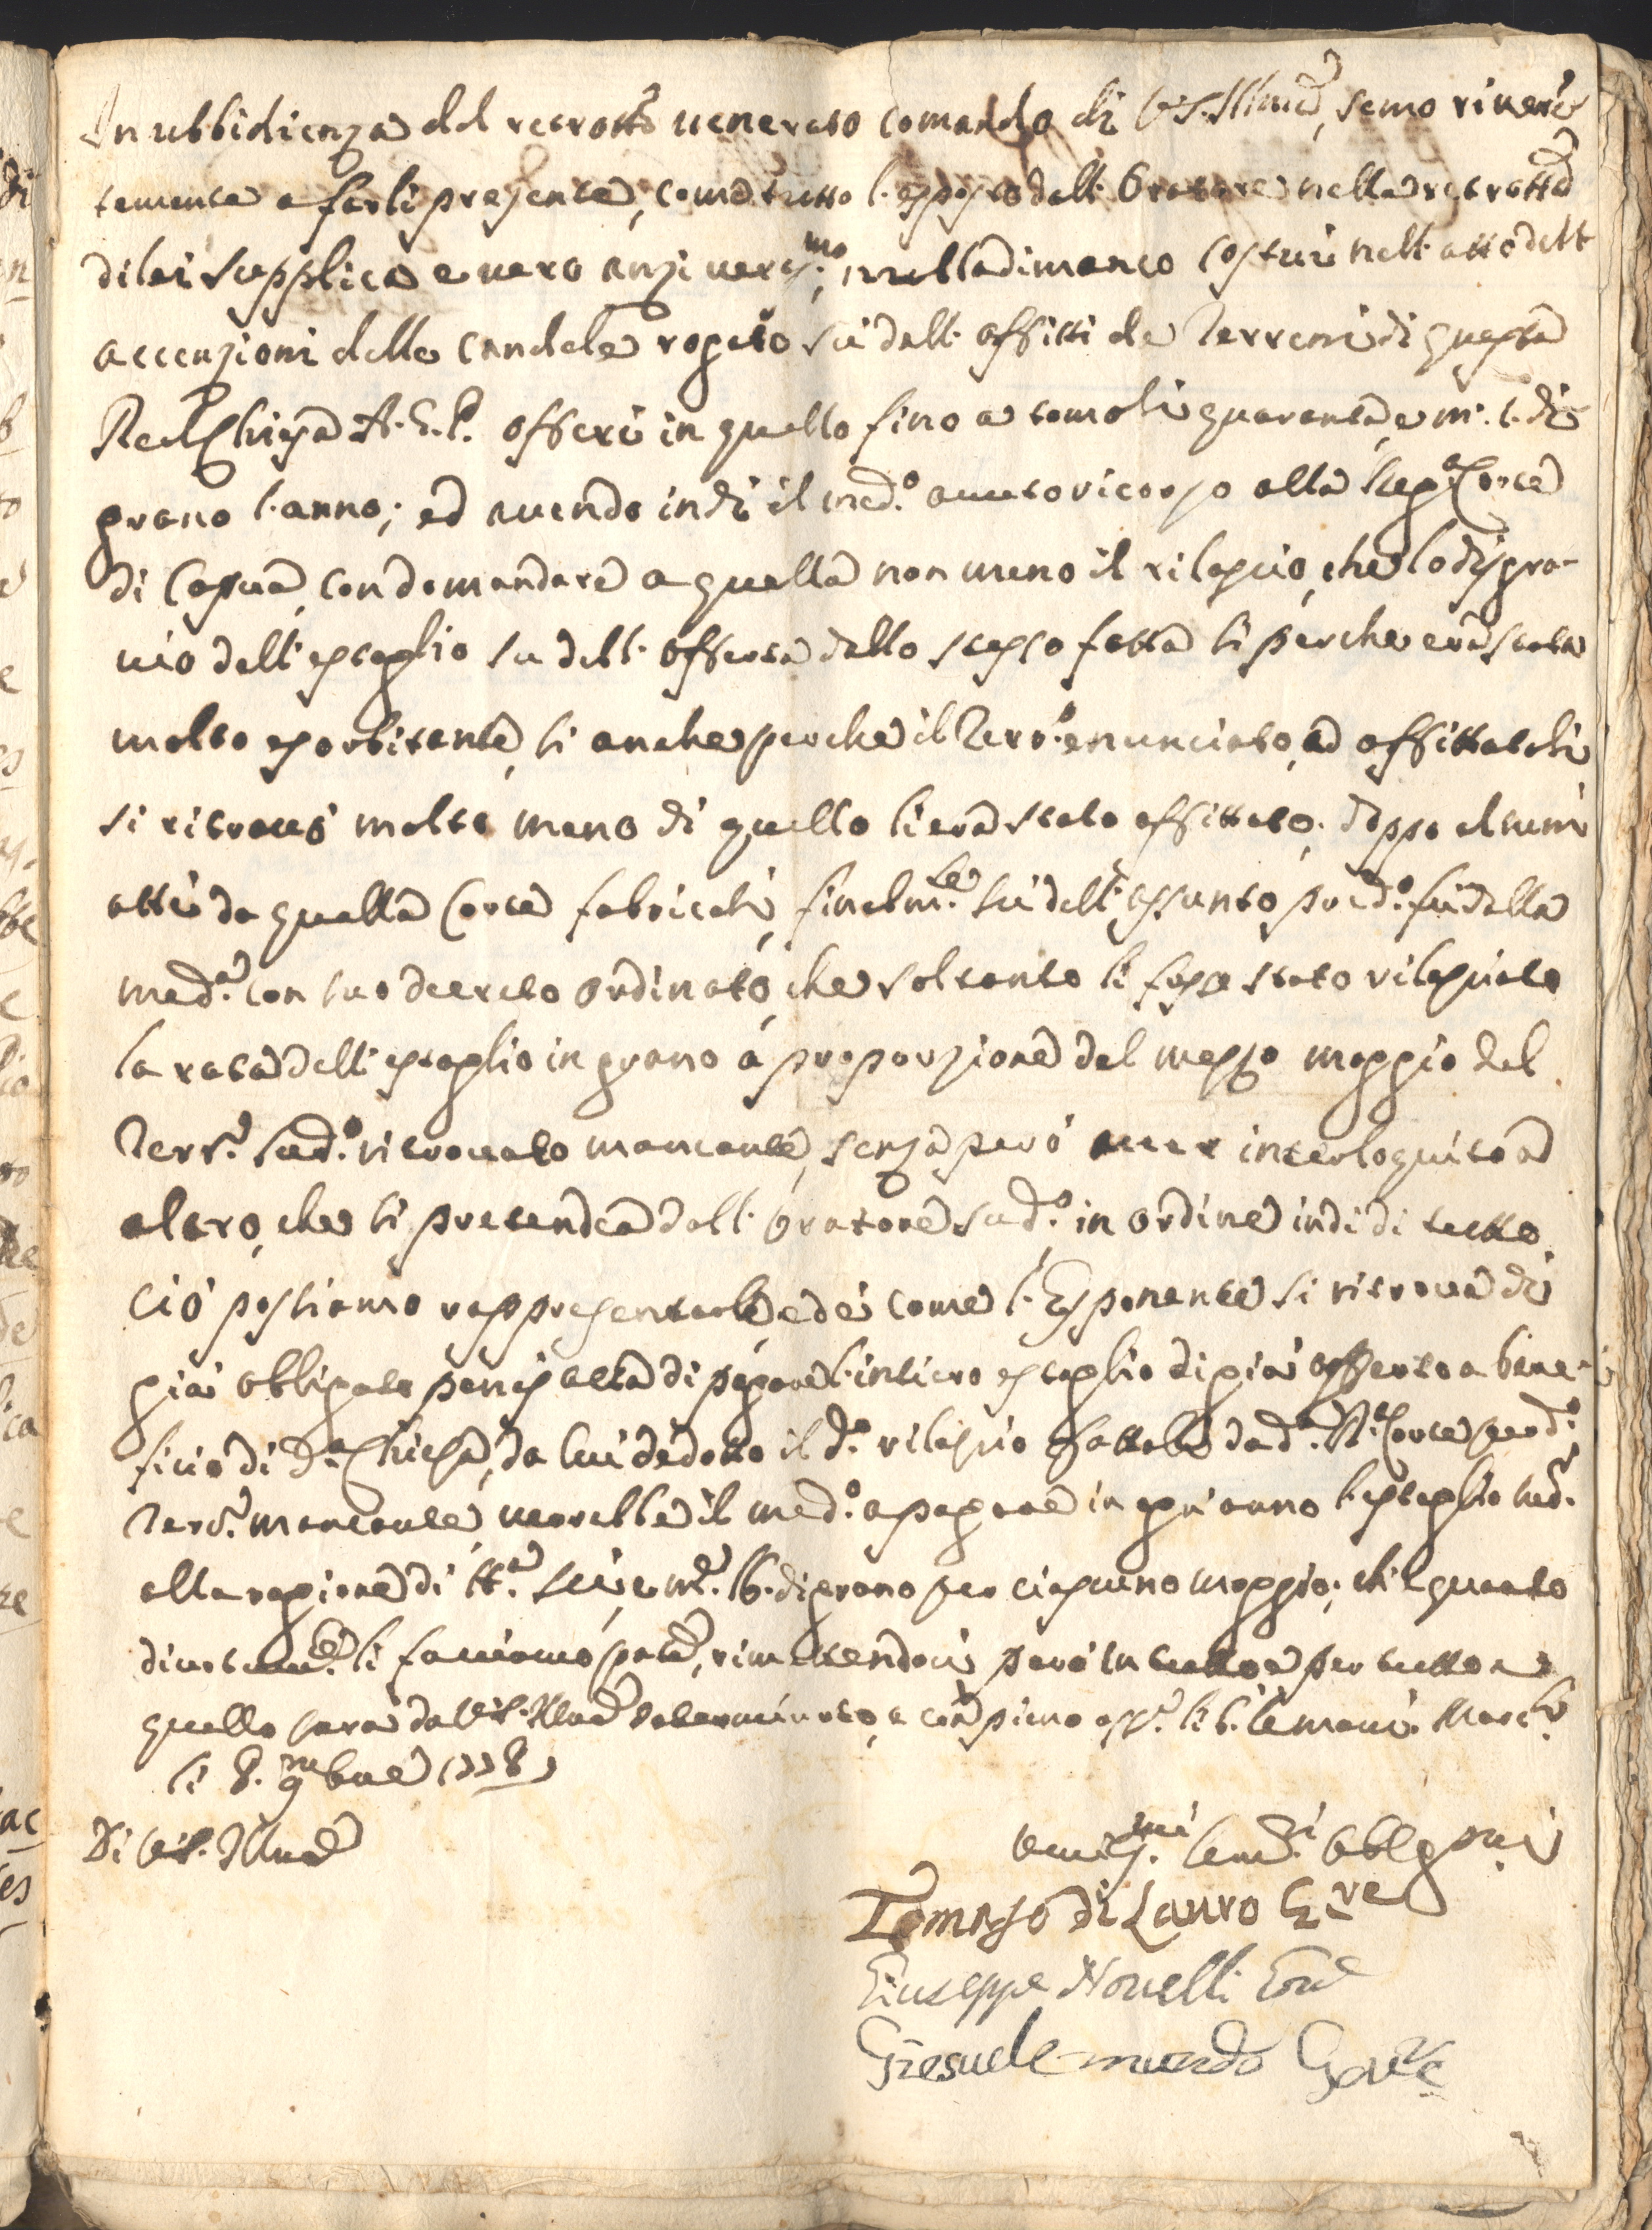 In ubbidienza del retrotto venerato comando di V.S. Illma, semo riveren-
temente a farli presente, come tutto l'esposto dell'Oratore nella retrotta
di lei supplica e vero anzi veris.mo, nulladimanco costui nell'atto dell'
accenzioni delle candele rogato su dell'affitti de Terreni di questa
Real Chiesa A.G.P. offerì in quello fino a tomola quaranta, e m: 6. di
grano l'anno; ed avendo indi il med.o avuto ricorso alla Reg.a Corte
di Capua, con domandare a quella non meno il rilascio, che lo disgra-
vio dell'estaglio su dell'offerta dallo stesso fatta sì perche era stata
molto esorbitante, sì anche perche il Terr.o enunciato, ad affittatoli
si ritrovò molto meno di quello li era stato affittato; doppo alcuni
atti da quella Corte fabricati, finalm.te su dell'assunto pred.o fu dalla
med.a con suo decreto ordinato, che soltanto li fosse stato rilasciato
la rata dell'estaglio in grano à proporzione del mezzo moggio del
Terr.o sud.o ritrovato mancante, senza però aver interloquito ad
altro, che si pretendea dall'Oratore sud.o in ordine indi di tutto
ciò possiamo rappresentarle, ed è come l'Esponente si ritrova di
già obbligato penes acta di pagare l'intiero estaglio di già offerto a bene-
ficio di d.a Chiesa, da cui dedotto il d.o rilascio fattoli da d.a R.a Corte pred.o
Terr.o mancante, verrebbe il med.o a pagare in ogni anno l'estaglio sud.o
alla ragione di tt.a sei, e m.e 16. di grano per ciascuno moggio; ch'è quanto
divotam.e li facciamo pnte, rimettendoci però in tutto e per tutto a
quello sarà da V.S. Illma determinato, e con pieno oss.o li b. le mani. Marc.se
li 8. 9mbre 1778
Di V.S. Illma
umiliss.mi serv.ri obblig.mi
Tomaso di Lauro E.re
Giuseppe Novelli Eore
Giesuele mundo Gov.re